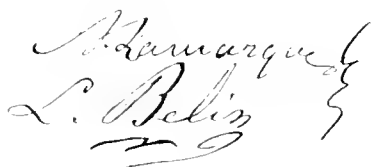 A. Lamarque
L. Belin